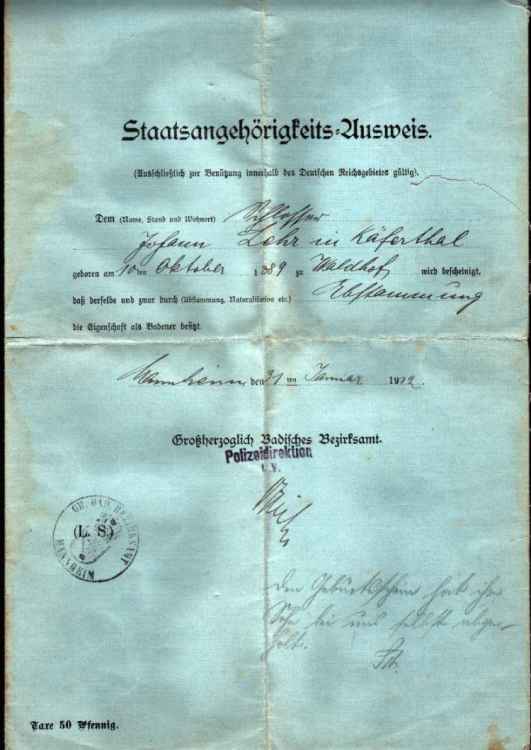 Staatsangehörigkeits=Ausweis.
(Ausschließlich zur Benützung innerhalb des Deutschen Reichsgebietes gültig).
Dem (Name, Stand und Wohnort) Schlosser
Johann Lehr in Käferthal
geboren am 10 ten Oktober 1889 zu Waldhof wird bescheinigt,
daß derselbe und zwar durch (Abstammung, Naturalisation etc.) Abstammung
die Eigenschaft als Badener besitzt.
Mannheim den 31 ten Januar 1912.
Großherzoglich Badisches Bezirksamt.
Polizeidirektion
(L. S.)
GR. BAD. BEZIRKSAMT
MANNHEIM
Den Geburtsschein hat ihr
Sohn bei uns selbst abge-
holt.
Taxe 50 Pfennig.